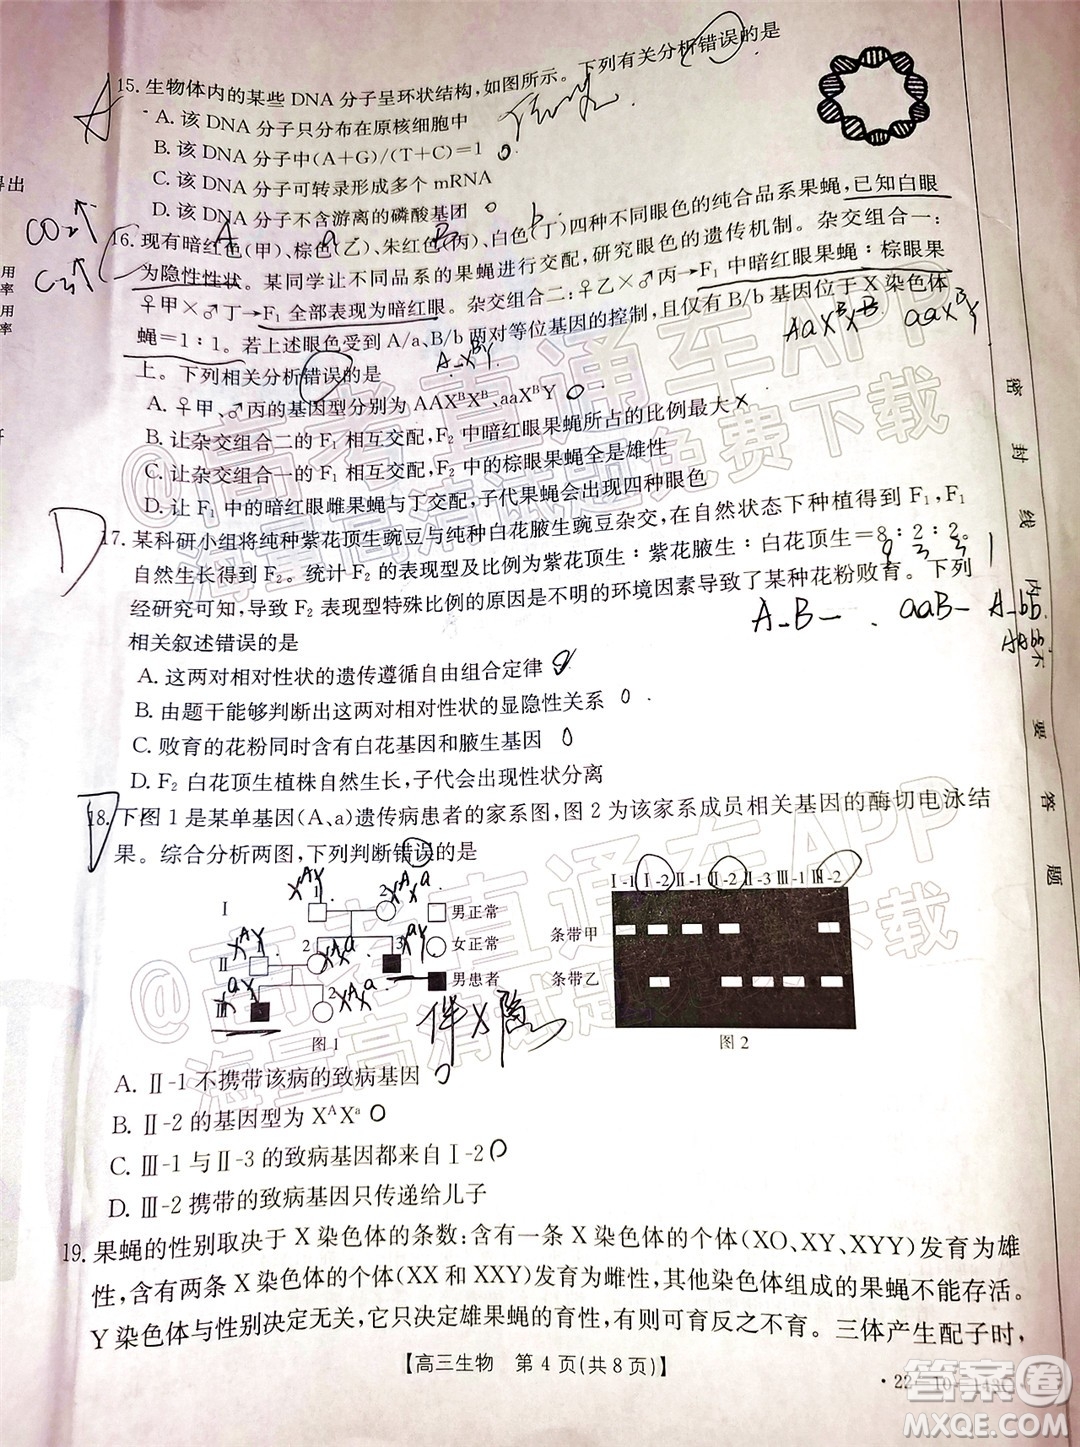 15. 生物体内的某些 DNA 分子呈环状结构,如图所示。下列有关分析错误的是
A. 该 DNA 分子只分布在原核细胞中
B. 该 DNA 分子中(A+G)/(T+C)=1
C. 该 DNA 分子可转录形成多个 mRNA
D. 该 DNA 分子不含游离的磷酸基团
16. 现有暗红色(甲)、棕色(乙)、朱红色(丙)、白色(丁)四种不同眼色的纯合品系果蝇,已知白眼
为隐性性状。某同学让不同品系的果蝇进行交配,研究眼色的遗传机制。杂交组合一:
♀甲×♂丁→F₁ 全部表现为暗红眼。杂交组合二:♀乙×♂丙→F₁ 中暗红眼果蝇:棕眼果
蝇=1:1。若上述眼色受到 A/a、B/b 两对等位基因的控制,且仅有 B/b 基因位于 X 染色体
上。下列相关分析错误的是
A. ♀甲、♂丙的基因型分别为 AAXᴮXᴮ、aaXᴮY
B. 让杂交组合二的 F₁ 相互交配,F₂ 中暗红眼果蝇所占的比例最大
C. 让杂交组合一的 F₁ 相互交配,F₂ 中的棕眼果蝇全是雄性
D. 让 F₁ 中的暗红眼雌果蝇与丁交配,子代果蝇会出现四种眼色
17. 某科研小组将纯种紫花顶生豌豆与纯种白花腋生豌豆杂交,在自然状态下种植得到 F₁,F₁
自然生长得到 F₂。统计 F₂ 的表现型及比例为紫花顶生:紫花腋生:白花顶生=8:2:2。
经研究可知,导致 F₂ 表现型特殊比例的原因是不明的环境因素导致了某种花粉败育。下列
相关叙述错误的是
A. 这两对相对性状的遗传遵循自由组合定律
B. 由题干能够判断出这两对相对性状的显隐性关系
C. 败育的花粉同时含有白花基因和腋生基因
D. F₂ 白花顶生植株自然生长,子代会出现性状分离
18. 下图 1 是某单基因(A、a)遗传病患者的家系图,图 2 为该家系成员相关基因的酶切电泳结
果。综合分析两图,下列判断错误的是
Ⅰ-1 Ⅰ-2 Ⅱ-1 Ⅱ-2 Ⅱ-3 Ⅲ-1 Ⅲ-2
男正常
女正常
男患者
条带甲
条带乙
图 1
图 2
A. Ⅱ-1 不携带该病的致病基因
B. Ⅱ-2 的基因型为 XᴬXᵃ
C. Ⅲ-1 与 Ⅱ-3 的致病基因都来自 Ⅰ-2
D. Ⅲ-2 携带的致病基因只传递给儿子
19. 果蝇的性别取决于 X 染色体的条数:含有一条 X 染色体的个体(XO、XY、XYY)发育为雄
性,含有两条 X 染色体的个体(XX 和 XXY)发育为雌性,其他染色体组成的果蝇不能存活。
Y 染色体与性别决定无关,它只决定雄果蝇的育性,有则可育反之不育。三体产生配子时,
【高三生物 第 4 页(共 8 页)】
密 封 线 内 不 要 答 题
答案圈
MXQE.COM